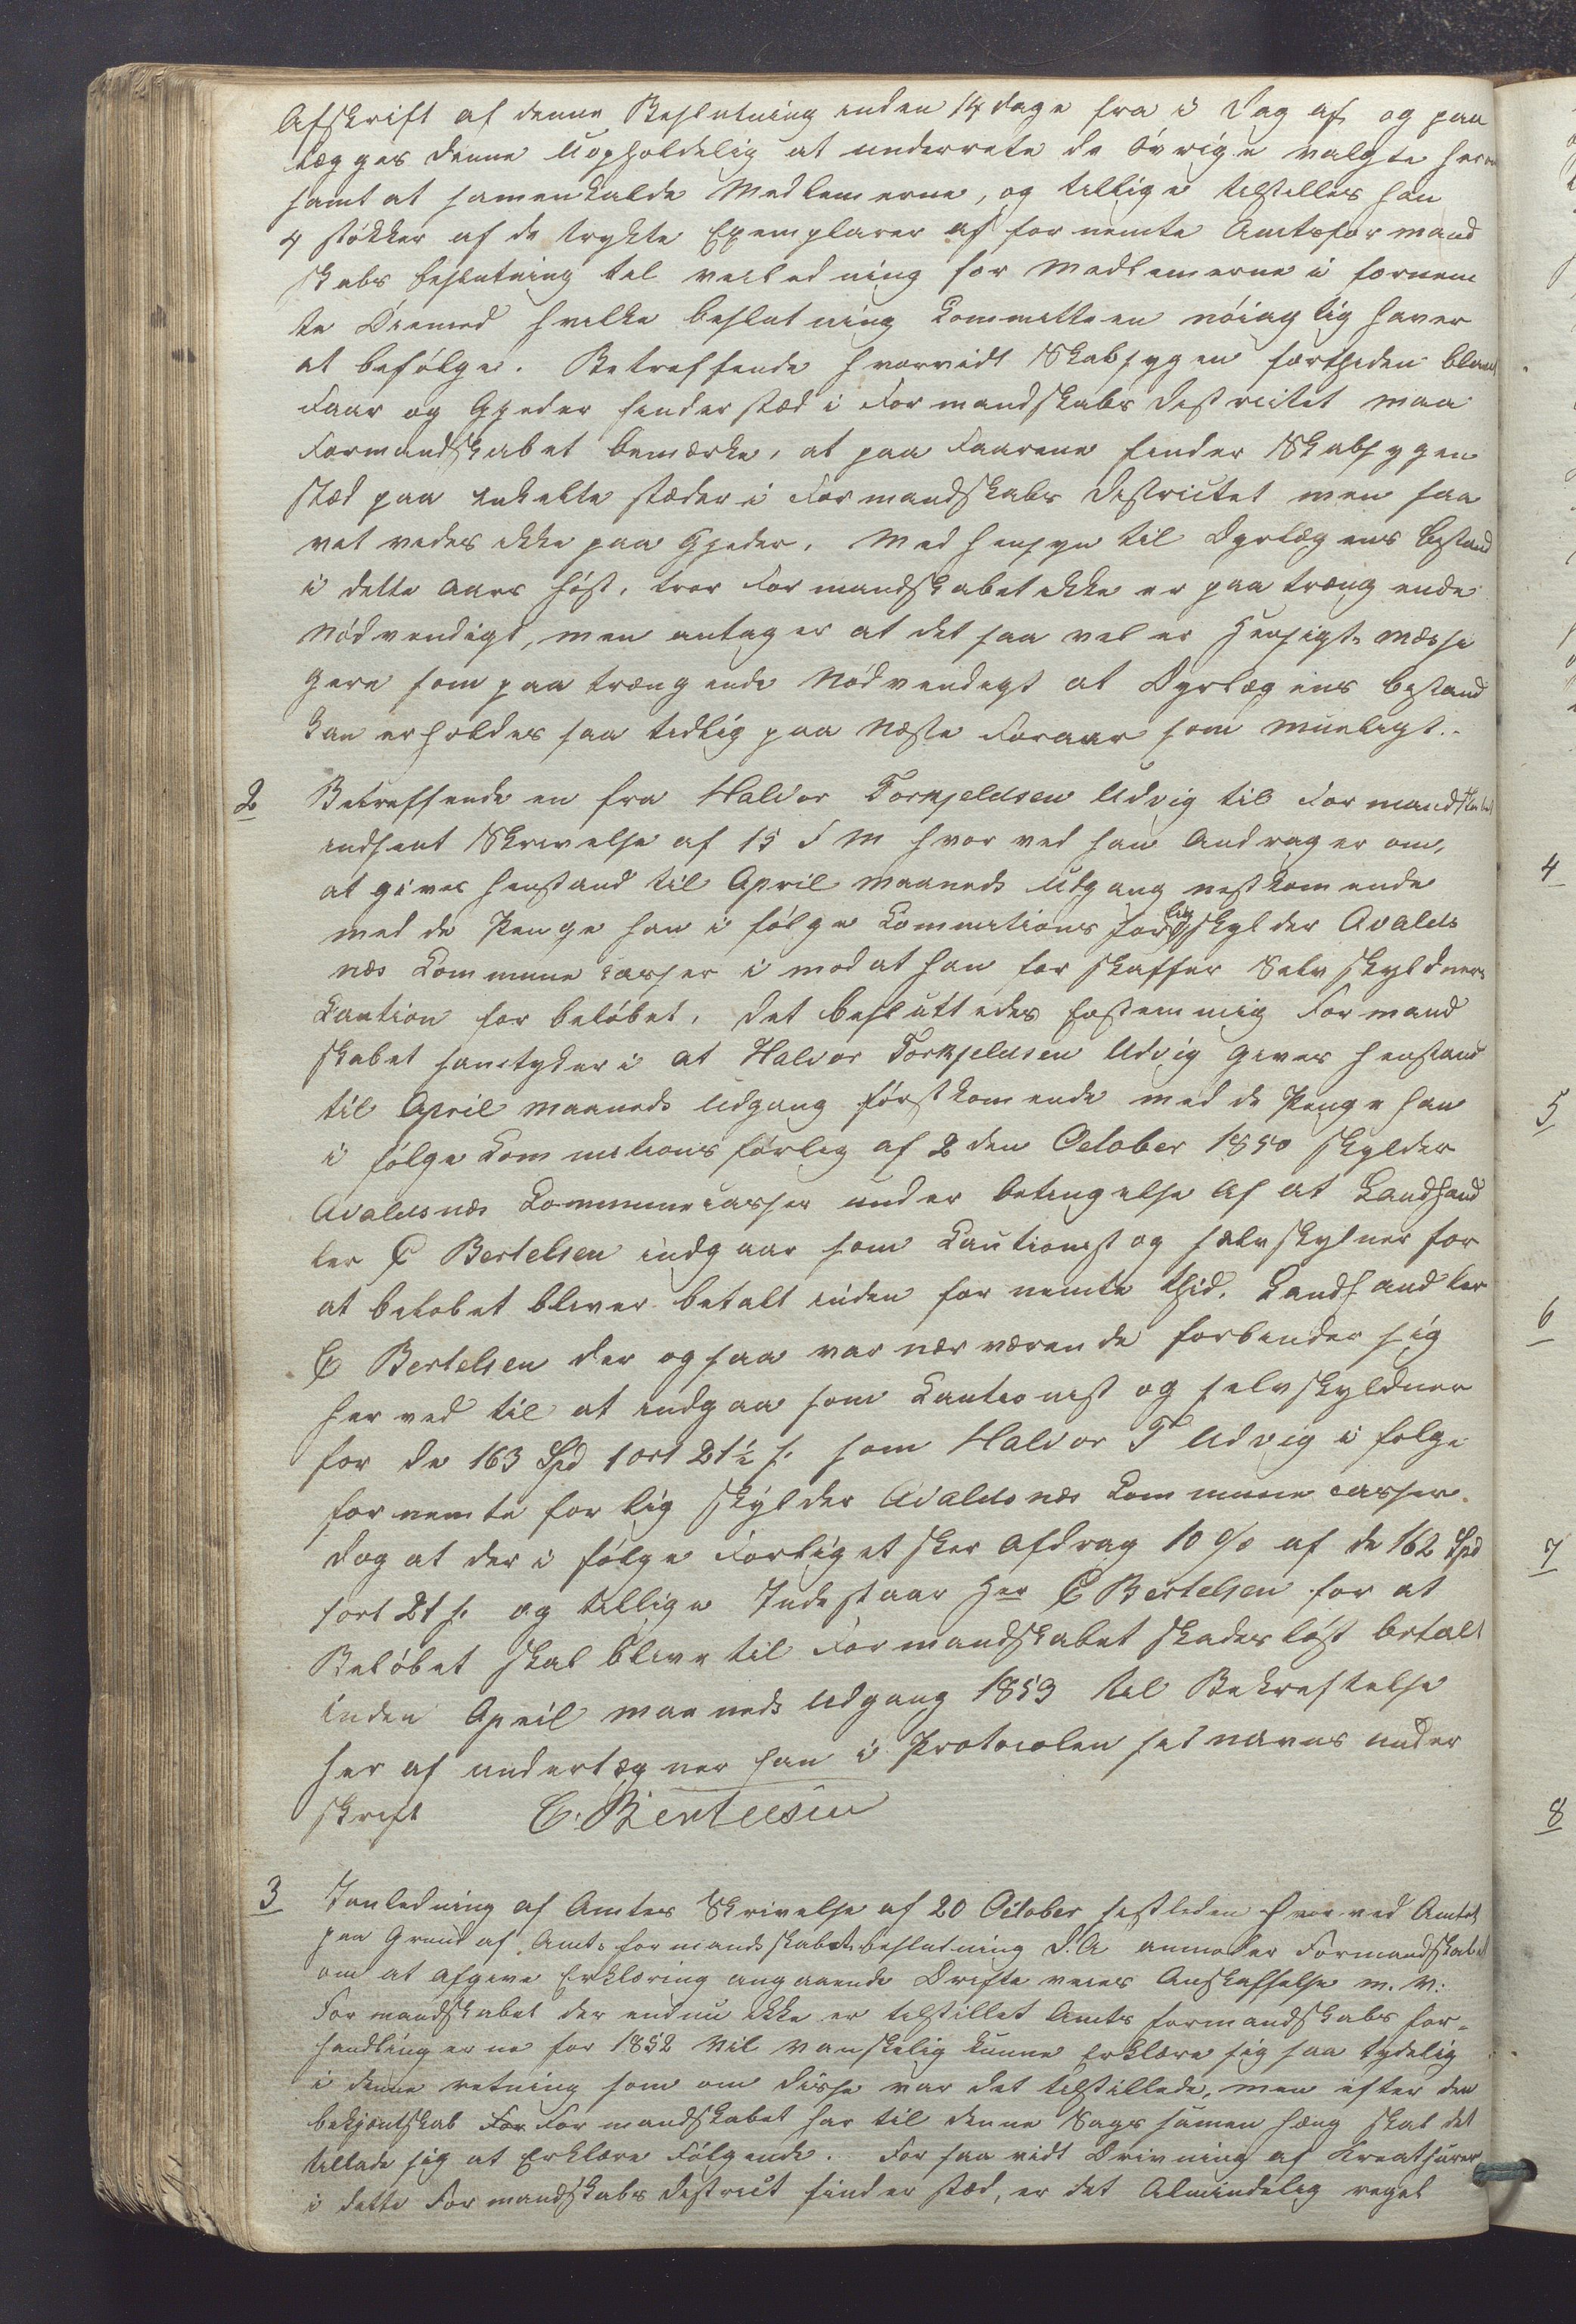 Afskrift af denne Beslutning inden 14 dage fra i Dag af, og paa
lægges denne Uopholdelig at underrete de Øvrige valgte herom
samt at samenkalde Medlemerne, og tillige tilstilles han
4 støkker af de trykte Exemplarer af fornemte Amtsformand
skabs beslutning til veiledning for Medlemerne i fornem
te Øiemed hvilke beslutning Committeen nøiagtig haver
at befølge. Betreffende hvorvidt Skabsygen fortheden bland
Faar og Gjeder finder stæd i Formandskabs Destrictet maa
Formandskabet bemærke, at paa Faarene finder Skabsygen
stæd paa enkelte stæder i Formandskabs Destrictet men saa
vet vedes ikke paa Gjeder. Med hensyn til Dyrlægens bestand
i dette Aars høst, tror Formandskabet ikke er paatrængende
Nødvendigt, men antager at det saa vel er Hensigts mæssi
gere som paatrængende Nødvendigt at Dyrlægens bestand
kan erholdes saa tidlig paa Næste Foraar som mueligt.
2 Betreffende en fra Haldor Torkjeldsen Udvig til Formandskabet
indsent Skrivelse af 15 d M hvorved han Andrager om,
at gives henstand til April maaneds Udgang nestkomende
med de Penge han i følge Commitions forlig skylder Avalds
næs Commune casser i mod at han forskaffer Selvskyldner
Caution for beløbet. Det besluttedes Enstemmig Formand
skabet samtykker i at Haldor Torkjeldsen Udvig Gives henstand
til April maaneds Udgang førstkomende med de Penge han
i følge Commitions forlig af 2den October 1850 skylder
Avaldsnæs Communecasser under betingelse af at Landhand
ler C Bertelsen indgaar som Cautionist og selvskylner for
at beløbet bliver betalt inden fornemte thid. Landhandler
C Bertelsen der ogsaa var nærværende forbinder sig
herved til at indgaa som Cautionist og selvskyldner
for de 163 Spd 1 ort 21½ s. som Haldor T Udvig i følge
fornemte forlig skylder Avaldsnæs Commune casser.
dog at der i følge Forliget sker Afdrag 10 % af de 162 Spd
1 ort 21 s. og tillige Indestaar Her C Bertelsen for at
Beløbet skal blive til Formandskabet skadesløst betalt
inden April maaneds Udgang 1853 til Bekreftelse
her af undertægner han i Protocolen sit navns under
skrift C. Bertelsen
3 I anledning af Amtes Skrivelse af 20 October sistleden hvorved Amtet
paa Grund af Amtsformandskabets beslutning D.A anmoder Formandskabet
om at afgive Erklæring angaaende Drifte veies Anskaffelse m. v:
Formandskabet der endnu ikke er tilstillet Amtsformandskabs for-
handlingerne for 1852 Vil vanskelig kunne Erklære sig saa tydelig
i denne retning som om disse var det tilstillede, men efter den
bekjentskab For Formandskabet har til denne Sags samenhæng skal det
tillade sig at Erklære Følgende. For saa vidt Drivning af Kreathurer
i dette Formandskabs District finder stæd, er det Almindelig regel
4
5
6
7
8